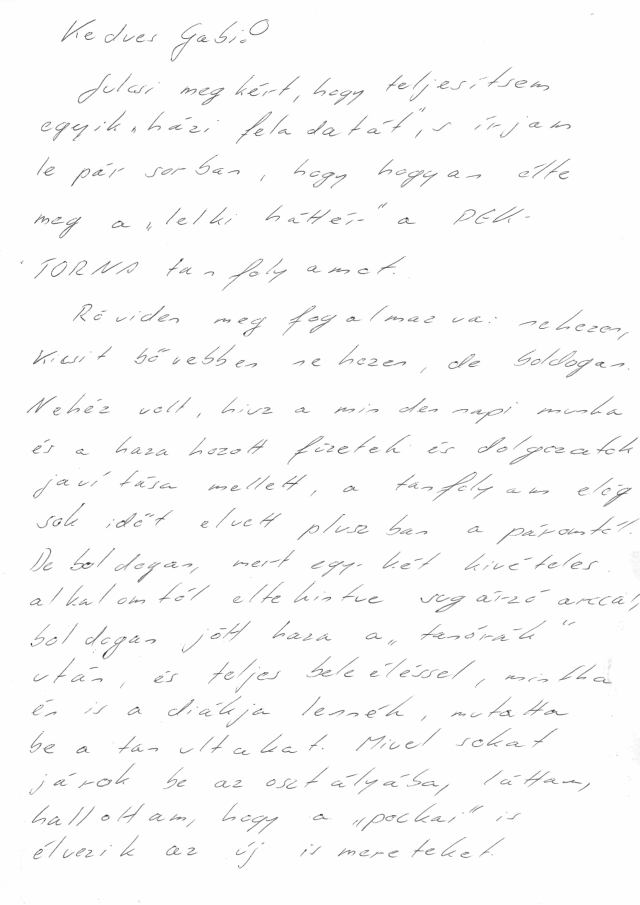 Kedves Gabi!
Julcsi megkért, hogy teljesítsem
egyik „házi feladatát", s írjam
le pár sorban, hogy hogyan élte
meg a „lelki háttér" a PEK-
TORNA tanfolyamot.
Röviden megfogalmazva: nehezen,
kicsit bővebben nehezen, de boldogan.
Nehéz volt, hisz a mindennapi munka
és a hazahozott füzetek és dolgozatok
javítása mellett, a tanfolyam elég
sok időt elvett pluszban a páromtól.
De boldogan, mert egy-két kivételes
alkalomtól eltekintve sugárzó arccal,
boldogan jött haza a „tanórák"
után, és teljes beleéléssel, mintha
én is a diákja lennék, mutatta
be a tanultakat. Mivel sokat
járok be az osztályába, láttam,
hallottam, hogy a „pockai" is
élvezik az új ismereteket.